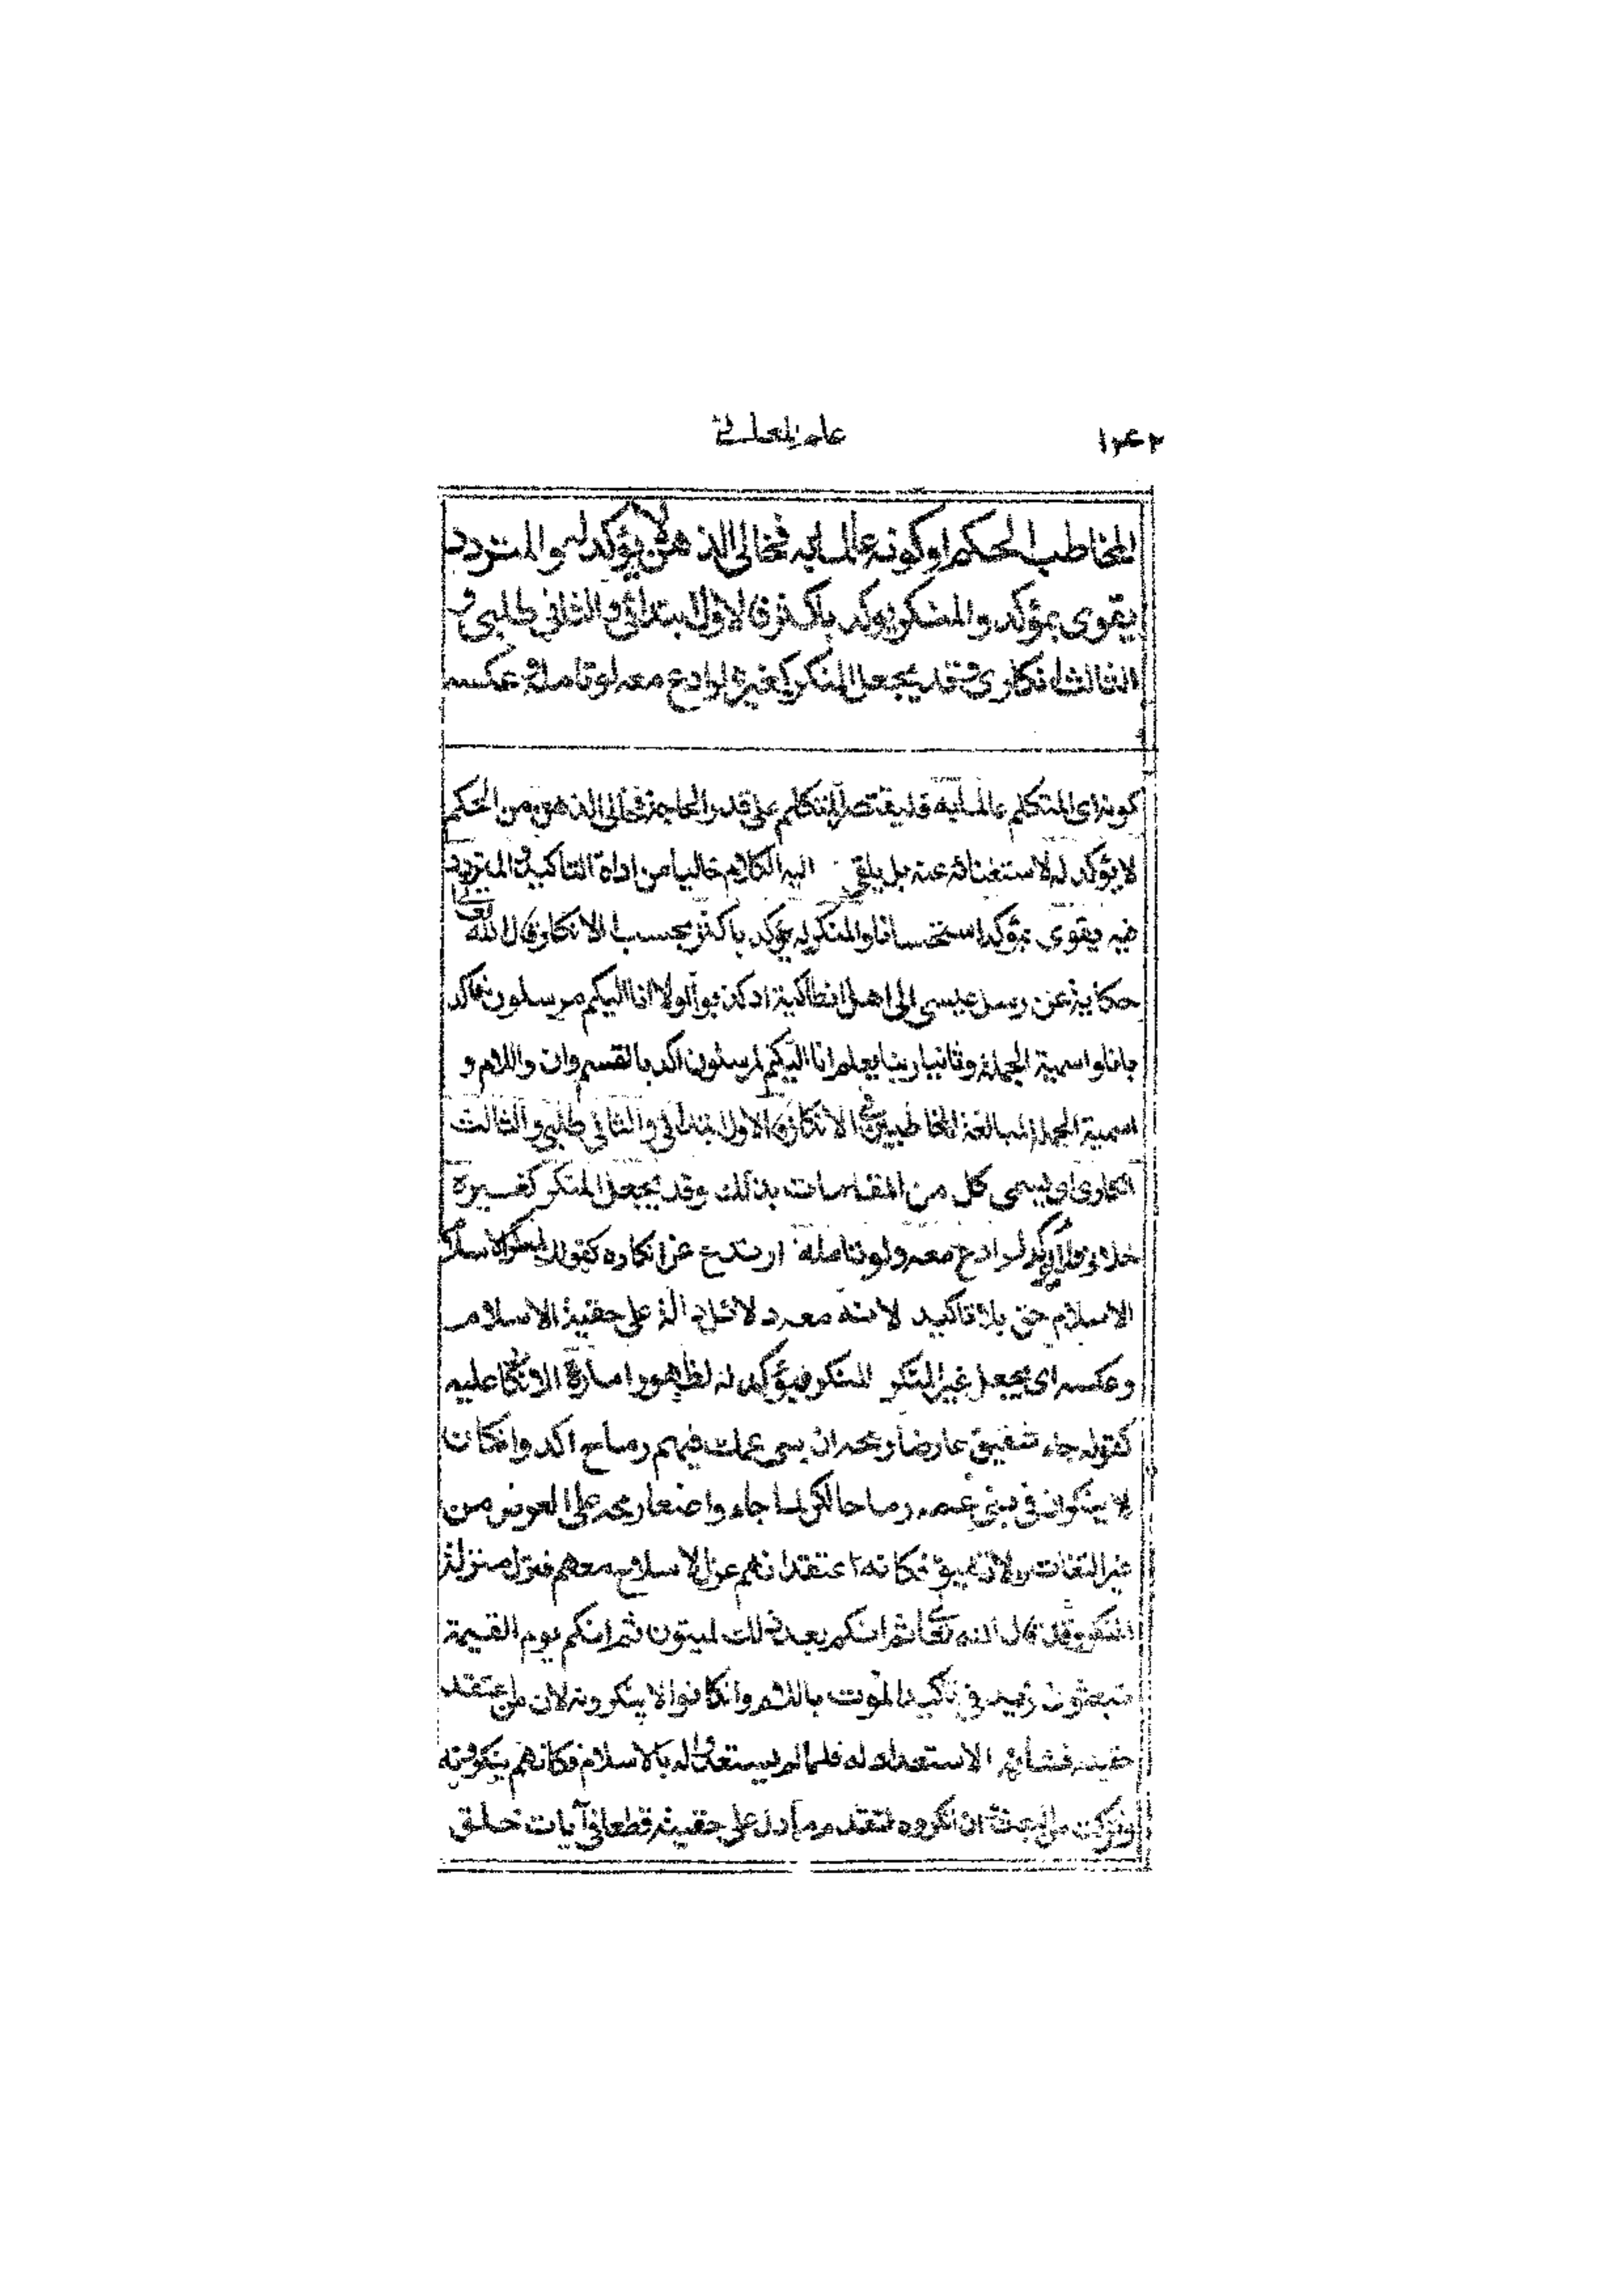 ١٤٢ علم المعانى
المخاطب الحكم او كونه عالما به فخالى الذهن لا يؤكد له والمتردد
يقوى بمؤكد والمنكر يؤكد باكثر فالاول ابتدائى والثانى طلبى و
الثالث انكارى وقد يجعل المنكر كغيره لرادع معه لو تامله وعكسه
كونه اى المتكلم عالما به فليقتصر المتكلم على قدر الحاجة فخالى الذهن من الحكم
لا يؤكد له لاستغنائه عنه بل يلقى اليه الكلام خاليا من اداة التاكيد والمتردد
فيه يقوى بمؤكد استحسانا والمنكر له يؤكد باكثر بحسب الانكار قال الله تعالى
حكاية عن رسل عيسى الى اهل انطاكية اذ كذبوا اولا انا اليكم مرسلون فاكد
بان واسمية الجملة وثانيا ربنا يعلم انا اليكم لمرسلون اكد بالقسم وان واللام و
اسمية الجملة لمبالغة المخاطبين فى الانكار فالاول ابتدائى والثانى طلبى والثالث
انكارى اى يسمى كل من المقامات بذلك وقد يجعل المنكر كغيره
فلا يؤكد لرادع معه ولو تامله ارتدع عن انكاره كقولك لمنكر الاسلام
الاسلام حق بلا تاكيد لانه معه دلائل دالة على حقية الاسلام
وعكسه اى يجعل غير المنكر كالمنكر فيؤكد له لظهور امارة الانكار عليه
كقوله جاء شقيق عارضا رمحه ان بنى عمك فيهم رماح اكد وان كان
لا ينكر ان فى بنى عمه رماحا لكن لما جاء واضعا رمحه على العرض من
غير التفات ولا تهيؤ فكانه اعتقد انهم عزل لا سلاح معهم فنزل منزلة
المنكر وقد قال الله تعالى ثم انكم بعد ذلك لميتون ثم انكم يوم القيمة
تبعثون زيد فى تاكيد الموت باللام وان كانوا لا ينكرونه لان من اعتقد
حقيته فشأنه الاستعداد له فلما لم يستعدوا له بالاسلام فكانهم ينكرونه
وتركت من البعث وان انكروه لتقدم ما دل على حقيته قطعا فى آيات خلق